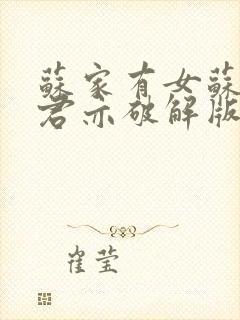 蘇家有女蘇
君亦破解版
崔莹